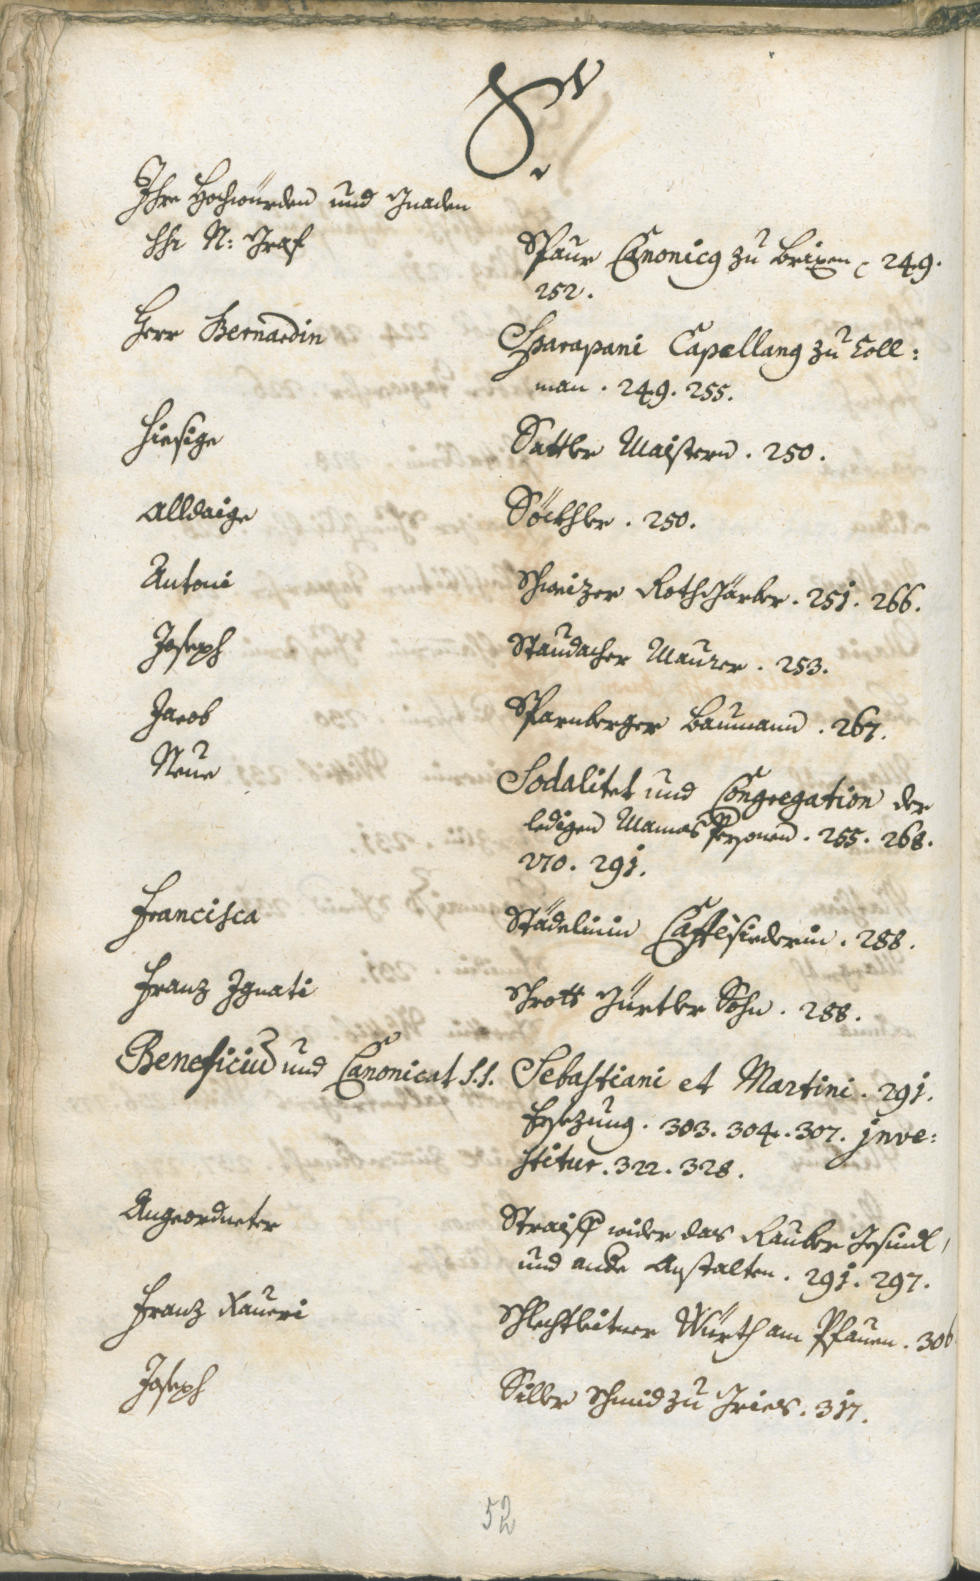 S.
Ihre Hochwürden und Gnaden
H: N: Graf Spaur Canonicq zu Brixen 249.
252.
Herr Bernardin Sparapani Capellanq zu Coll=
man. 249. 255.
Hiesige Sattler Maistern. 250.
Alldaige Söckhler. 250.
Antoni Schweizer Rothgärber. 251. 266.
Joseph Staudacher Maurer. 253.
Jacob Sparnberger Baumann. 267.
Neue Sodalitet und Congregation der
ledigen Manns Persohnen. 255. 268.
270. 291.
Francisca Städelinin Caffésiederin. 288.
Franz Ignati Schrott Gürtler Sohn. 288.
Beneficiũ und Canonicat S.S. Sebastiani et Martini. 291.
Ersezung. 303. 304. 307. Inve=
stitur. 322. 328.
Angeordneter Straiff wider das Rauber Gesindl,
und ande Anstalten. 291. 297.
Franz Xaveri Schlechtleitner Würth am Pfauen. 306
Joseph Silber Schmid zu Gries. 317.
52